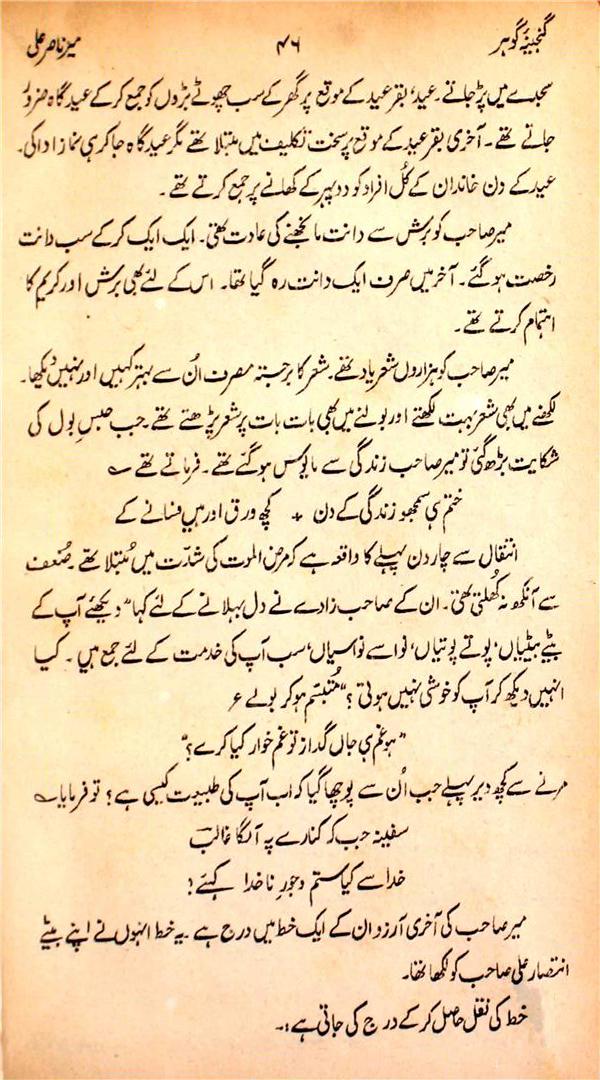 گنجینۂ گوہر ۴۶ میر ناصر علی
سجدے میں پڑ جاتے۔ عید، بقر عید کے موقع پر گھر کے سب چھوٹے بڑوں کو جمع کرکے عید گاہ ضرور
جاتے تھے۔ آخری بقر عید کے موقع پر سخت تکلیف میں مبتلا تھے مگر عید گاہ جاکر ہی نماز ادا کی۔
عید کے دن خاندان کے کُل افراد کو دوپہر کے کھانے پر جمع کرتے تھے۔
میر صاحب کو برش سے دانت مانجھنے کی عادت تھی۔ ایک ایک کرکے سب دانت
رخصت ہوگئے۔ آخر میں صرف ایک دانت رہ گیا تھا۔ اس کے لئے بھی برش اور کریم کا
اہتمام کرتے تھے۔
میر صاحب کو ہزاروں شعر یاد تھے۔ شعر کا برجستہ مصرف اُن سے بہتر کہیں اور نہیں دیکھا۔
لکھنے میں بھی شعر بہت لکھتے اور بولنے میں بھی بات بات پر شعر پڑھتے تھے۔ جب حبسِ بول کی
شکایت بڑھ گئی تو میر صاحب زندگی سے مایوس ہوگئے تھے۔ فرماتے تھے ؎
ختم ہی سمجھو زندگی کے دن + کچھ ورق اور ہیں فسانے کے
انتقال سے چار دن پہلے کا واقعہ ہے کہ مرض الموت کی شدّت میں مُبتلا تھے۔ ضُعف
سے آنکھ نہ کُھلتی تھی۔ ان کے صاحب زادے نے دل بہلانے کے لئے کہا "دیکھئے آپ کے
بیٹے بیٹیاں، پوتے پوتیاں، نواسے نواسیاں، سب آپ کی خدمت کے لئے جمع ہیں۔ کیا
انہیں دیکھ کر آپ کو خوشی نہیں ہوتی؟" مُتبسّم ہوکر بولے ؏
"ہو غم ہی جاں گداز تو غم خوار کیا کرے؟"
مرنے سے کچھ دیر پہلے جب اُن سے پوچھا گیا کہ اب آپ کی طبیعت کیسی ہے؟ تو فرمایا ؎
سفینہ جب کہ کنارے پہ آلگا غالبؔ
خدا سے کیا ستم و جورِ ناخدا کہئے!
میر صاحب کی آخری آرزو ان کے ایک خط میں درج ہے۔ یہ خط انہوں نے اپنے بیٹے
انتصار علی صاحب کو لکھا تھا۔
خط کی نقل حاصل کرکے درج کی جاتی ہے:۔